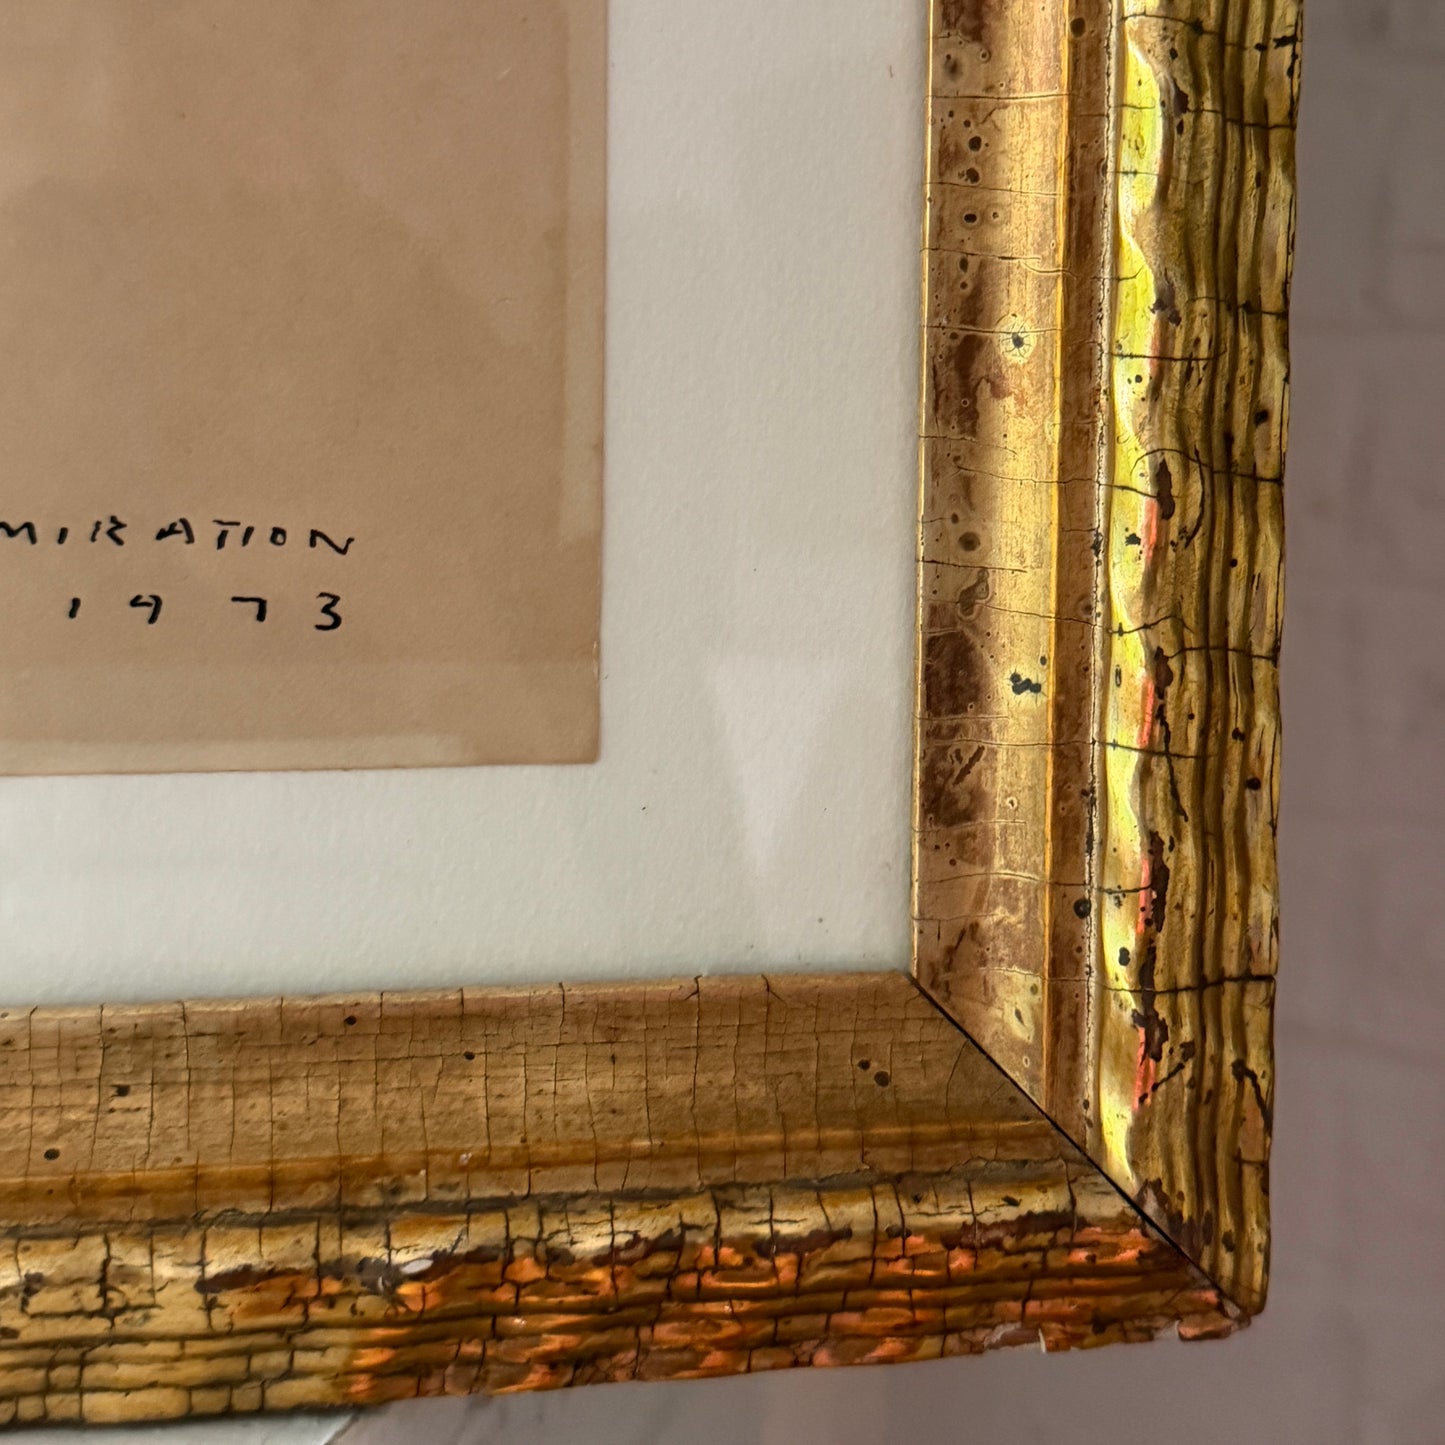 MIRATION
1973